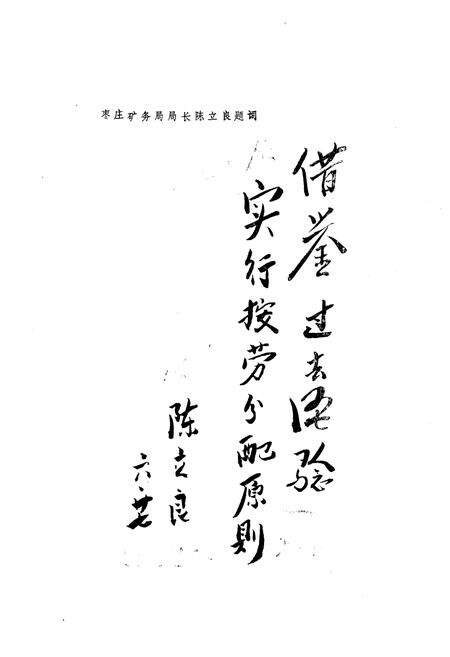 枣庄矿务局局长陈立良题词
借鉴过去经验
实行按劳分配原则
陈立良
六·廿七